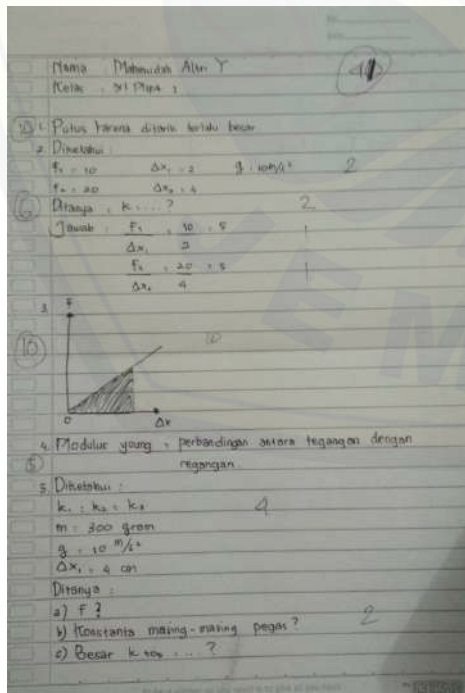 Nama : Mahmudah Y
Kelas : XI MIPA
10 1. Putus karena ditarik terlalu besar
2. Diketahui :
F₁ = 10 Δx₁ = 2 g = 10 m/s² 2
F₂ = 20 Δx₂ = 4
6 Ditanya : k .... ? 2
Jawab : F₁ = 10 = 5 1
Δx₁ 2
F₂ = 20 = 5 1
Δx₂ 4
3. F
10 10
0 Δx
4. Modulus young = perbandingan antara tegangan dengan
5 regangan.
5. Diketahui :
k₁ = k₂ = k₃ 4
m = 300 gram
g = 10 m/s²
Δx₁ = 4 cm
Ditanya :
a) F ?
b) Konstanta masing-masing pegas ? 2
c) Besar k tot .... ?